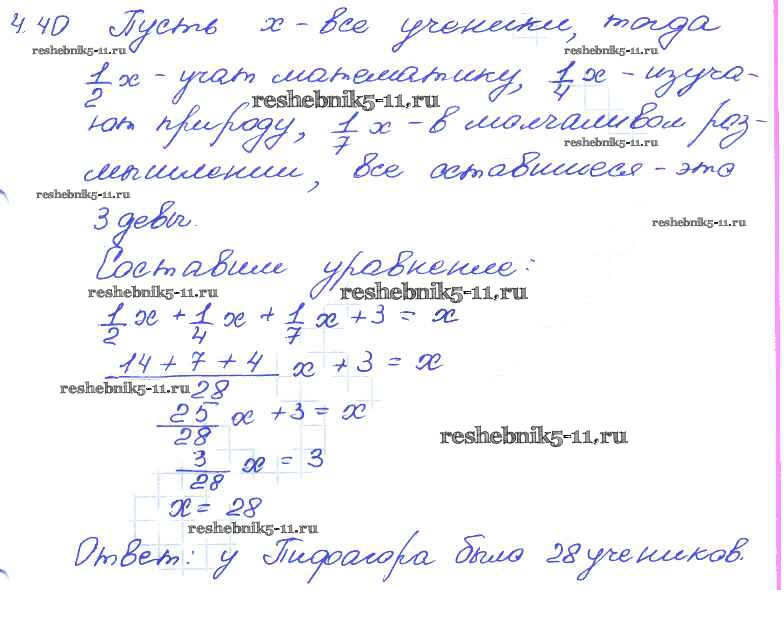 4.40 Пусть x - все ученики, тогда
reshebnik5-11.ru reshebnik5-11.ru
1/2 x - учат математику, 1/4 x - изуча-
reshebnik5-11.ru
ют природу, 1/7 x - в молчаливом раз-
reshebnik5-11.ru
мышлении, все оставшиеся - это
reshebnik5-11.ru
3 девы.
reshebnik5-11.ru
Составим уравнение:
reshebnik5-11.ru reshebnik5-11.ru
1/2 x + 1/4 x + 1/7 x + 3 = x
(14 + 7 + 4)/28 x + 3 = x
reshebnik5-11.ru
25/28 x + 3 = x
reshebnik5-11.ru
3/28 x = 3
x = 28
reshebnik5-11.ru
Ответ: у Пифагора было 28 учеников.